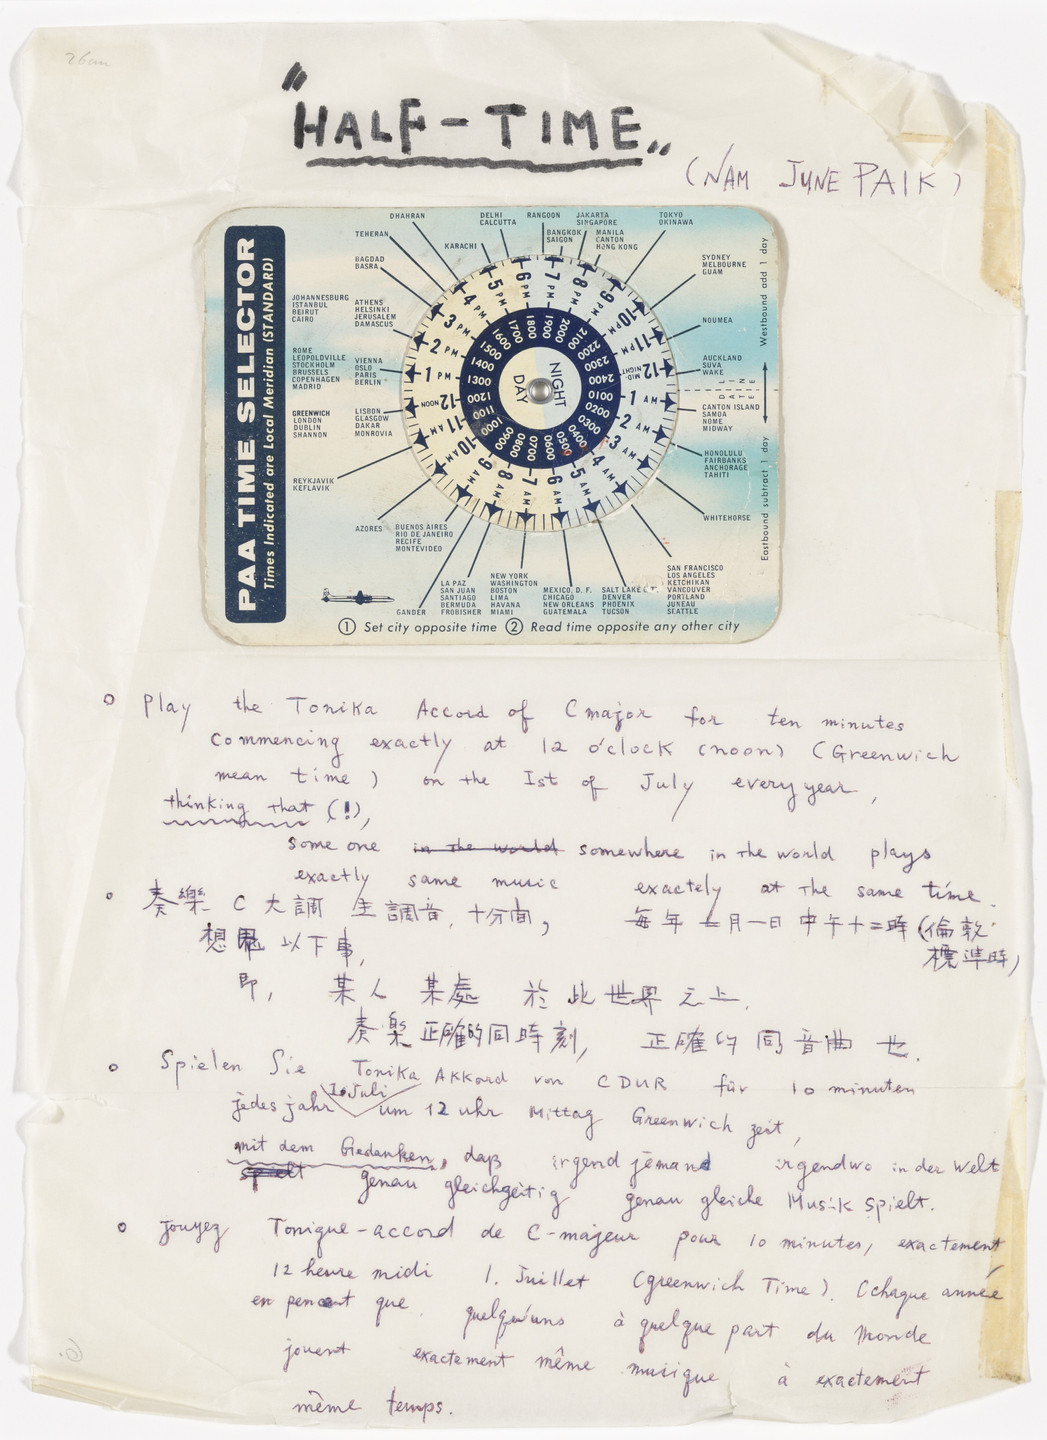 26am
"HALF-TIME„
(NAM JUNE PAIK)
PAA TIME SELECTOR
Times Indicated are Local Meridian (STANDARD)
DHAHRAN
TEHERAN
BAGDAD
BASRA
KARACHI
DELHI
CALCUTTA
RANGOON
BANGKOK
SAIGON
JAKARTA
SINGAPORE
MANILA
CANTON
HONG KONG
TOKYO
OKINAWA
SYDNEY
MELBOURNE
GUAM
NOUMEA
AUCKLAND
SUVA
WAKE
DATE LINE
CANTON ISLAND
SAMOA
NOME
MIDWAY
HONOLULU
FAIRBANKS
ANCHORAGE
TAHITI
WHITEHORSE
SAN FRANCISCO
LOS ANGELES
KETCHIKAN
VANCOUVER
PORTLAND
JUNEAU
SEATTLE
SALT LAKE
DENVER
PHOENIX
TUCSON
MEXICO, D. F.
CHICAGO
NEW ORLEANS
GUATEMALA
NEW YORK
WASHINGTON
BOSTON
LIMA
HAVANA
MIAMI
LA PAZ
SAN JUAN
SANTIAGO
BERMUDA
FROBISHER
GANDER
BUENOS AIRES
RIO DE JANEIRO
RECIFE
MONTEVIDEO
AZORES
REYKJAVIK
KEFLAVIK
GREENWICH
LONDON
DUBLIN
SHANNON
LISBON
GLASGOW
DAKAR
MONROVIA
ROME
LEOPOLDVILLE
STOCKHOLM
BRUSSELS
COPENHAGEN
MADRID
VIENNA
OSLO
PARIS
BERLIN
JOHANNESBURG
ISTANBUL
BEIRUT
CAIRO
ATHENS
HELSINKI
JERUSALEM
DAMASCUS
12 NOON
1 PM
2 PM
3 PM
4 PM
5 PM
6 PM
7 PM
8 PM
9 PM
10 PM
11 PM
12 MID-NIGHT
1 AM
2 AM
3 AM
4 AM
5 AM
6 AM
7 AM
8 AM
9 AM
10 AM
11 AM
1200
1300
1400
1500
1600
1700
1800
1900
2000
2100
2200
2300
2400
0100
0200
0300
0400
0500
0600
0700
0800
0900
1000
1100
NIGHT
DAY
Westbound add 1 day
Eastbound subtract 1 day
① Set city opposite time ② Read time opposite any other city
Play the Tonika Accord of C major for ten minutes
commencing exactly at 12 o'clock (noon) (Greenwich
mean time) on the Ist of July every year,
thinking that (!),
some one in the world somewhere in the world plays
exactly same music exactely at the same time.
奏樂 C 大調 主調音, 十分間, 每年 七月一日 中午十二時 (倫敦
標準時)
想 以下事,
即, 某人 某處 於此世界之上,
奏樂 正確的同時刻, 正確的 同音曲 也.
Spielen Sie Tonika Akkord von C DUR für 10 minuten
jedes jahr 1. Juli um 12 uhr Mittag Greenwich zeit,
mit dem Gedanken, daß irgend jemand irgendwo in der Welt
spielt genau gleichzeitig genau gleiche Musik spielt.
Jouyez Tonique-accord de C-majeur pour 10 minutes, exactement
12 heure midi 1. Juillet (greenwich Time). (chaque année
en pensant que quelqu'uns à quelque part du Monde
jouent exactement même musique à exactement
même temps.
6.